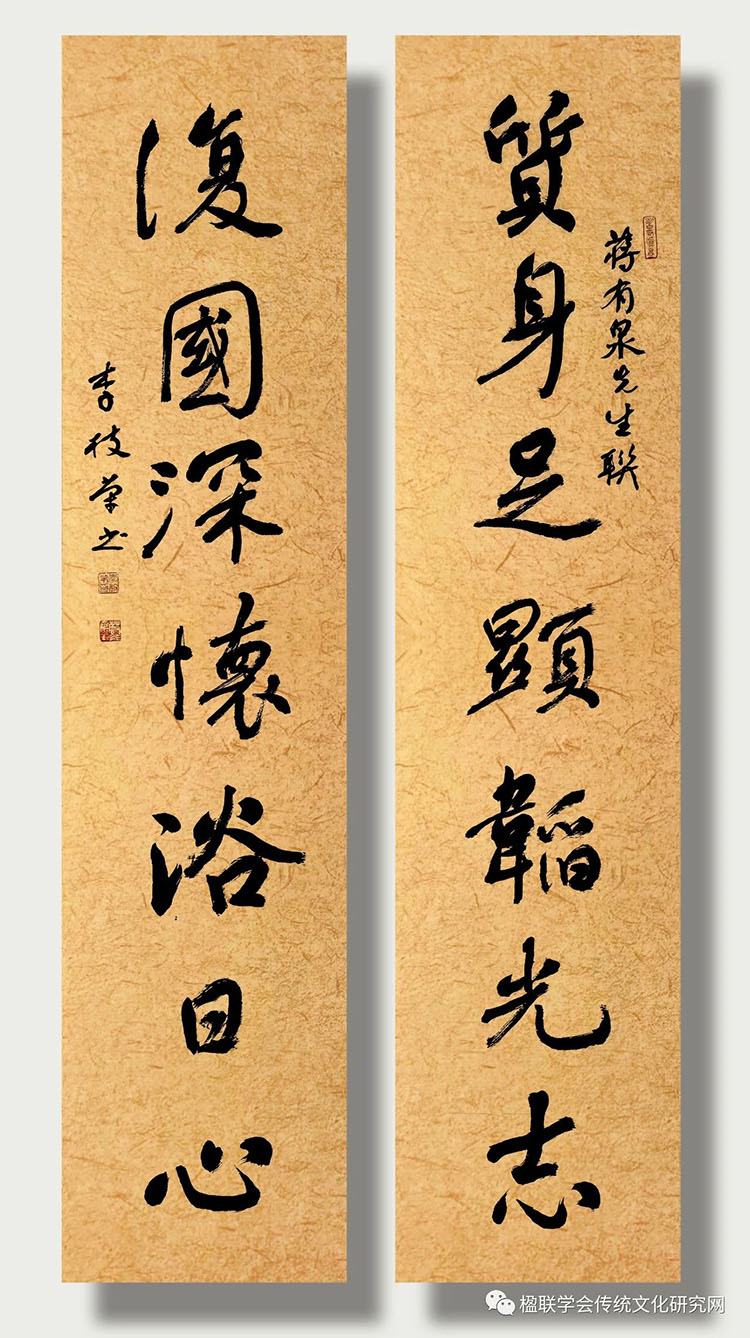 質身足顯韜光志
蔣有泉先生聯
復國深懷浴日心
李枝榮书
楹联学会传统文化研究网